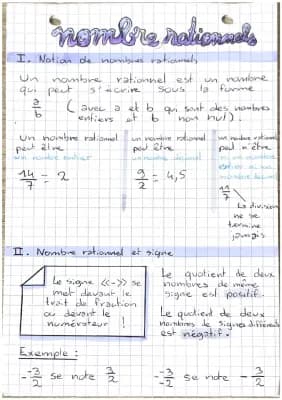 nombre rationnels
I. Notion de nombres rationnels
Un nombre rationnel est un nombre
qui peut s'écrire sous la forme
a/b (avec a et b qui sont des nombres
entiers et b non nul).
Un nombre rationnel
peut être
un nombre entier
14/7 = 2
un nombre rationnel
peut être
un nombre décimal
9/2 = 4,5
un nombre rationnel
peut n'être
ni un nombre
entier ni un
nombre décimal
11/7
La division
ne se
termine
jamais
II. Nombre rationnel et signe
Le signe <<->> se
met devant le
trait de fraction
ou devant le
numérateur !
Le quotient de deux
nombres de même
signe est positif.
Le quotient de deux
nombres de signes différents
est négatif.
Exemple :
- -3/2 se note 3/2
- -3/2 se note - 3/2